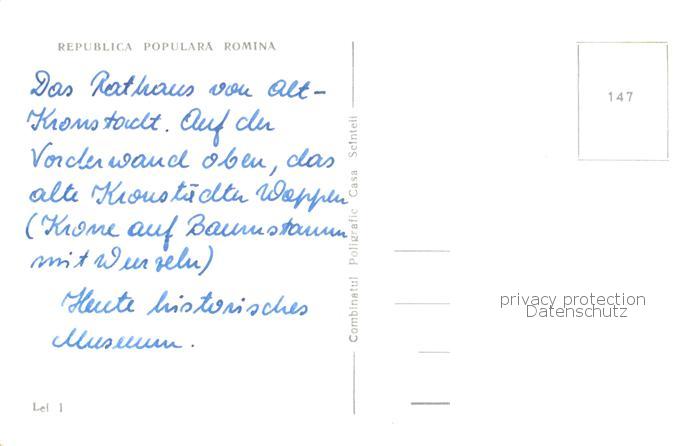 REPUBLICA POPULARĂ ROMÎNĂ
Das Rathaus von Alt-
Kronstadt. Auf der
Vorderwand oben, das
alte Kronstädter Wappen
(Krone auf Baumstamm
mit Wurzeln)
Heute historisches
Museum.
Lei 1
Combinatul Poligrafic Casa Scînteii
147
privacy protection
Datenschutz